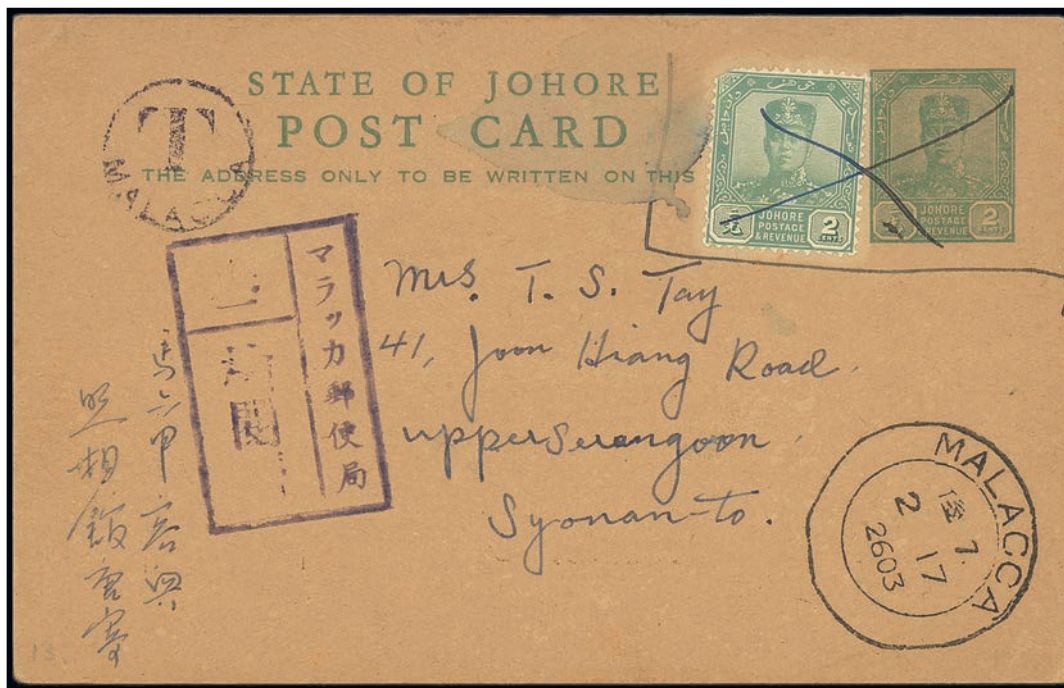 STATE OF JOHORE
POST CARD
THE ADDRESS ONLY TO BE WRITTEN ON THIS
T
MALACCA
JOHORE
POSTAGE
& REVENUE
2
CENTS
JOHORE
POSTAGE
& REVENUE
2
CENTS
マラッカ郵便局
閲
Mrs. T. S. Tay
41, Joon Hiang Road.
Upper Serangoon.
Syonan-to.
馬六甲
照相館
MALACCA
後 7.
2 17
2603
13.